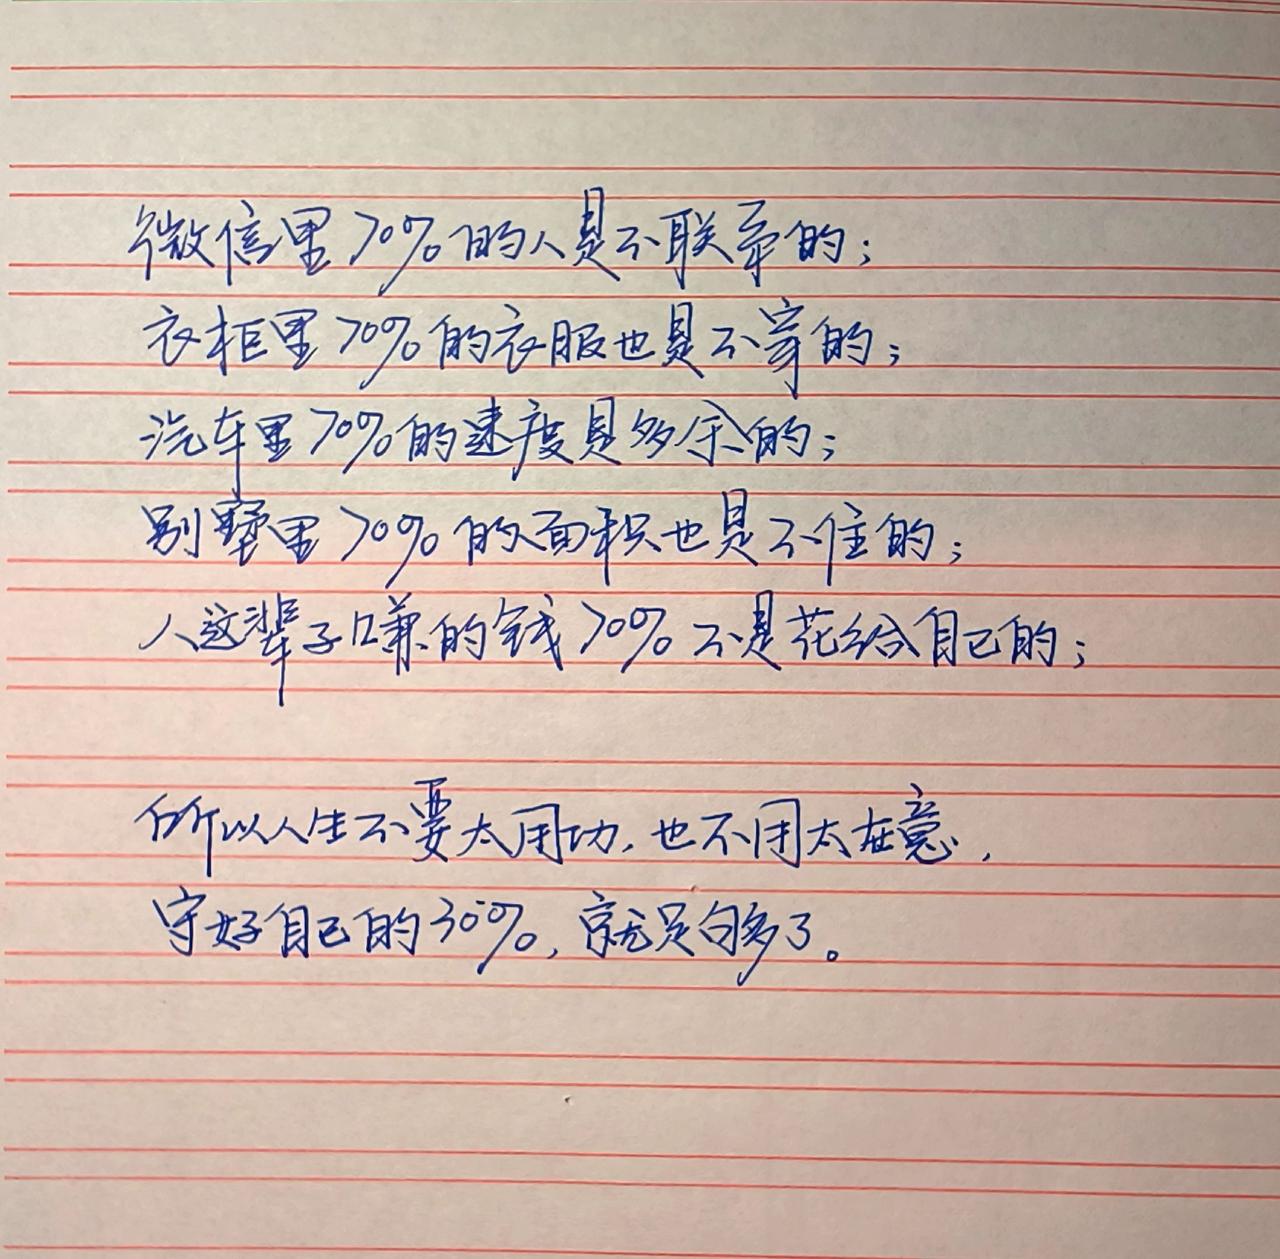 微信里70%的人是不联系的；
衣柜里70%的衣服也是不穿的；
汽车里70%的速度是多余的；
别墅里70%的面积也是不住的；
人这辈子赚的钱70%不是花给自己的；
所以人生不要太用功，也不用太在意，
守好自己的30%，就足够多了。